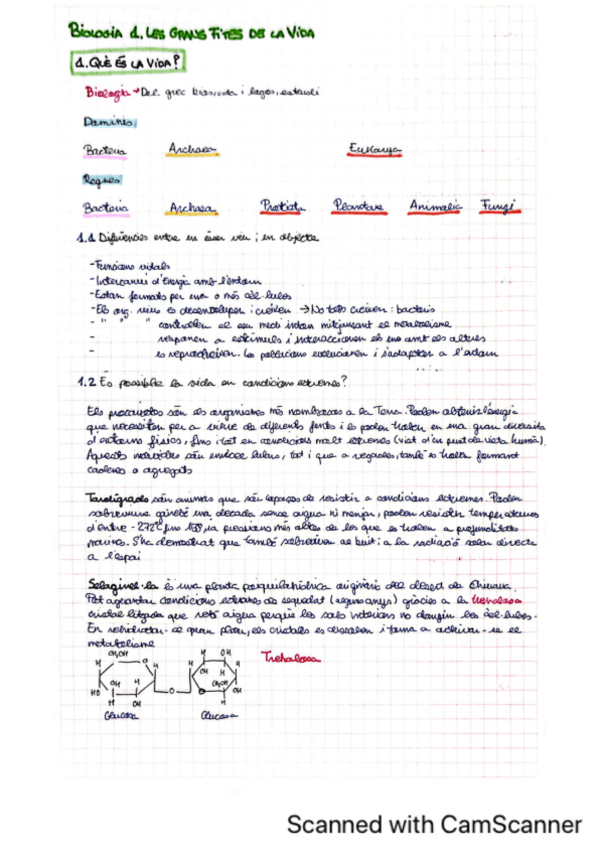 Biologia 1. Les Grans Fites de la Vida
1. Què és la Vida?
Biologia → Del grec bios, vida i logos, estudi
Dominis:
Bacteria Archaea Eukarya
Regnes
Bacteria Archaea Protista Plantae Animalia Fungi
1.1 Diferències entre un ésser viu i un objecte
- Funcions vitals
- Intercanvi d'Energia amb l'entorn
- Estan formats per una o més cèl·lules
- Els org. vius es desenvolupen i creixen → No tots creixen: bacteris
- " " " controlen el seu medi intern mitjançant el metabolisme
- responen a estímuls i interaccionen els uns amb els altres
- es reprodueixen. Les poblacions evolucionen i s'adapten a l'entorn
1.2 És possible la vida en condicions extremes?
Els procariotes són els organismes més nombrosos a la Terra. Poden obtenir l'energia
que necessiten per a viure de diferents fonts i es poden trobar en una gran diversitat
d'entorns físics, fins i tot en condicions molt extremes (vist d'un punt de vista humà).
Aquests individus són unicel·lulars, tot i que a vegades, també es troben formant
cadenes o agregats
Tardígrads són animals que són capaços de resistir a condicions extremes. Poden
sobreviure gairebé una dècada sense aigua ni menjar, poden resistir temperatures
d'entre -272º fins 155, la pressions més altes de les que es troben a profunditats
marines. S'ha demostrat que també sobreviuen al buit i a la radiació solar directe
a l'espai
Selaginel·la és una planta poiquilohídrica originària del desert de Chihuahua.
Pot aguantar condicions extremes de sequedat (alguns anys) gràcies a la trehalosa
cristal·litzada que reté aigua perquè les sals internes no danyin les cèl·lules.
En rehidratar-se quan plou, els cristalls es dissolen i torna a activar-se el
metabolisme
Trehalosa
CH₂OH
H
O
H
OH
H
HO
OH
H
OH
O
H
OH
OH
H
CH₂OH
O
H
OH
Glucosa Glucosa
Scanned with CamScanner